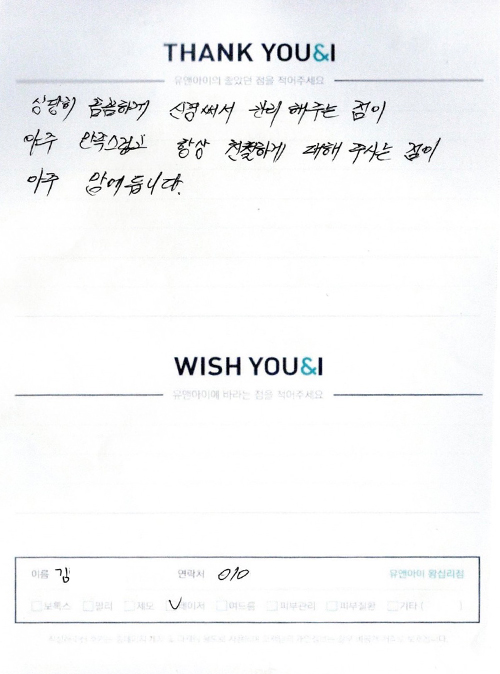 THANK YOU&I
유앤아이의 좋았던 점을 적어주세요
상당히 꼼꼼하게 신경써서 관리 해주는 점이
아주 만족스럽고 항상 친절하게 대해 주시는 점이
아주 맘에듭니다.
WISH YOU&I
유앤아이에 바라는 점을 적어주세요
이름 김 연락처 010 유앤아이 왕십리점
보톡스 필러 제모 레이저 여드름 피부관리 피부질환 기타 ( )